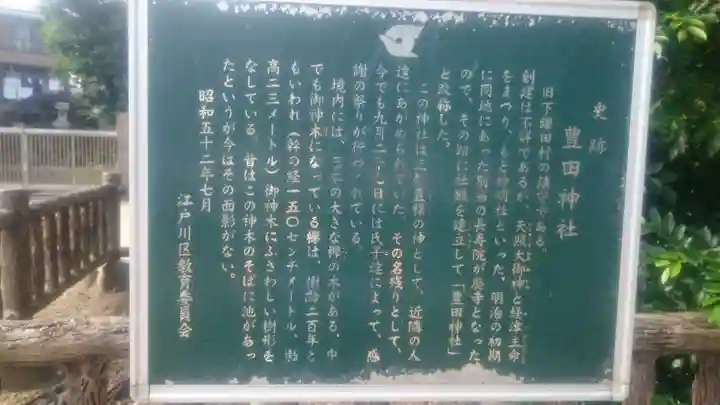 史跡
豊田神社
旧下鎌田村の鎮守である。
創建は不詳であるが、天照大御神と経津主命
をまつり、もと神明社といった。明治の初期
に同地にあった別当の長寿院が廃寺となった
ので、その跡に社殿を建立して「豊田神社」
と改称した。
この神社は五穀豊穣の神として、近隣の人
達にあがめられていた。その名残りとして、
今でも九月二十一日には氏子達によって、感
謝の祭りが行われている。
境内には、三本の大きな欅の木がある。中
でも御神木になっている欅は、樹齢二百年と
もいわれ（幹の経一五〇センチメートル、樹
高二三メートル）御神木にふさわしい樹形を
なしている。昔はこの神木のそばに池があっ
たというが今はその面影がない。
昭和五十二年七月
江戸川区教育委員会